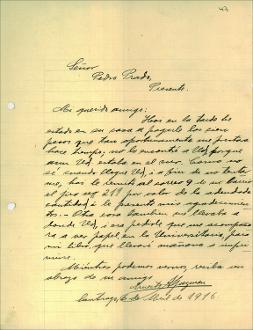 Señor
Pedro Prado,
Presente.
Mi querido amigo: Hoy en la tarde he
estado en su casa a pagarle los cien
pesos que tan oportunamente me prestara
hace tiempo; no lo encontré a Ud. porque
aun Ud. estaba en el
si cuando llegue Ud. i a fin de no tardar
mas,
por valor de la adeudada
cantidad, i le presento mis agradecimien-
tos. - Otra cosa tambien me llevaba a
donde Ud., i era pedirle que me acompaña-
ra a ver papel en la Universitaria, para
mi libro, que llevaré mañana a impri-
mirse.
Mientras podemos vernos, reciba un
abrazo de su amigo
Santiago, 6 de Abril de 1916